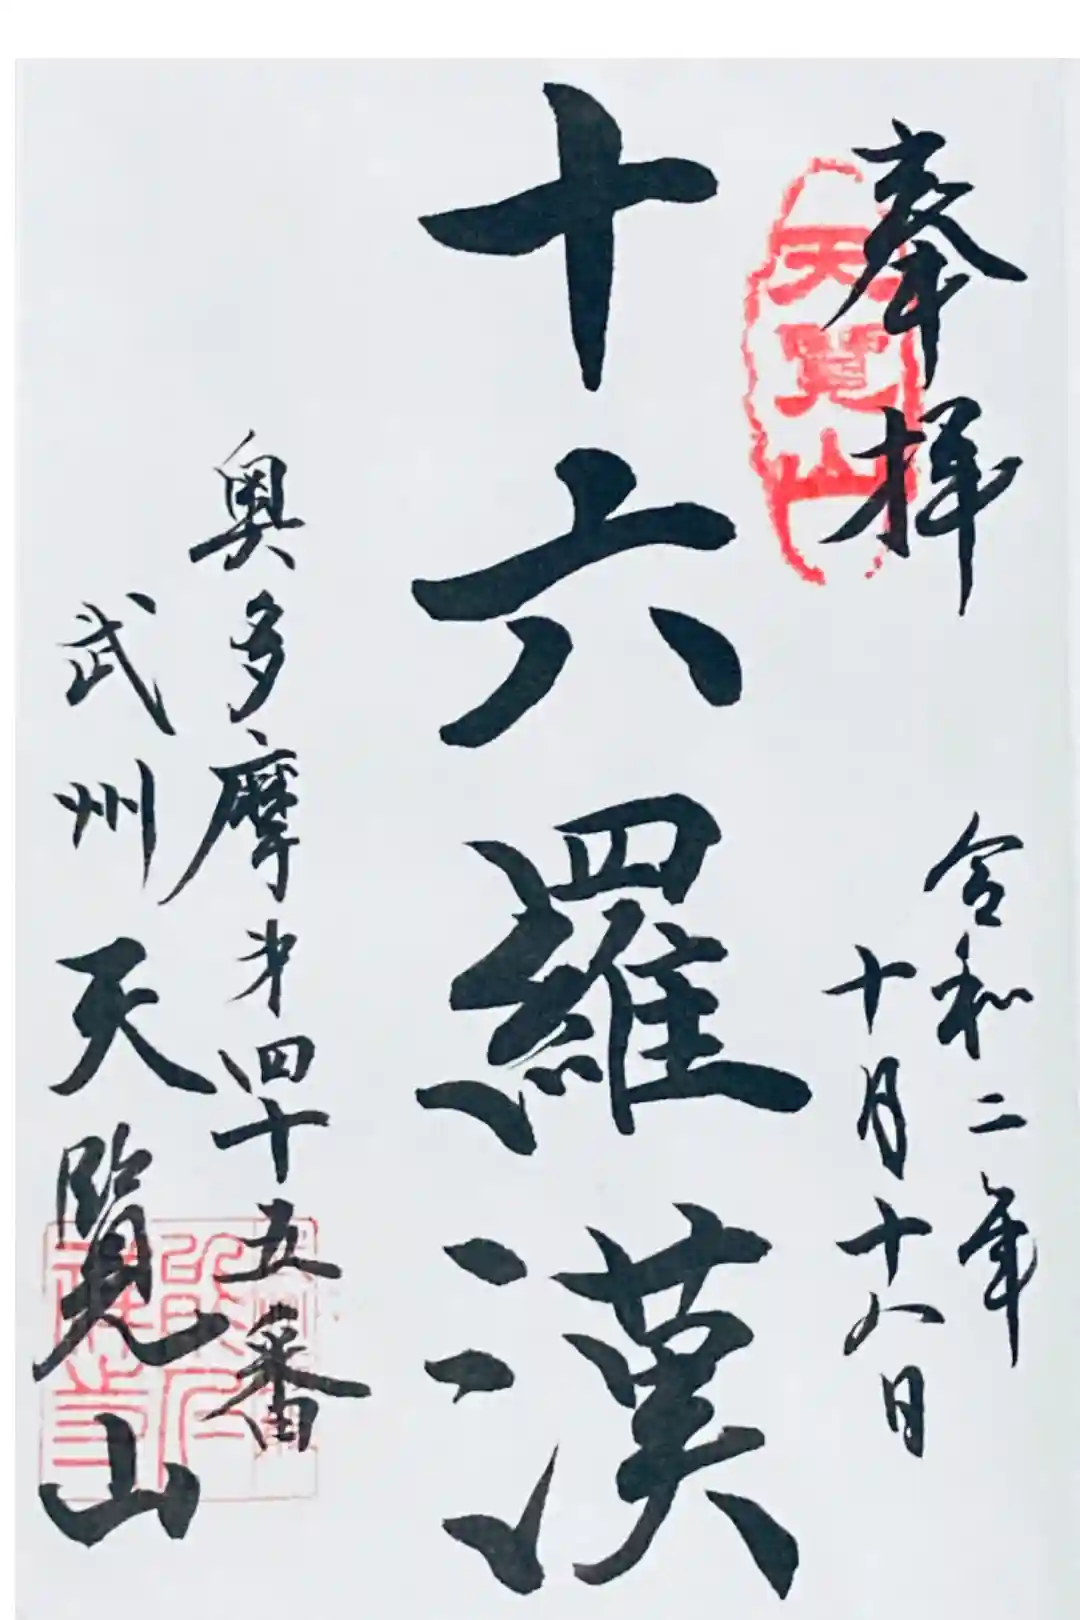 奉拝
天覧山
令和二年
十月十八日
十六羅漢
奥多摩第四十五番
武州天覧山